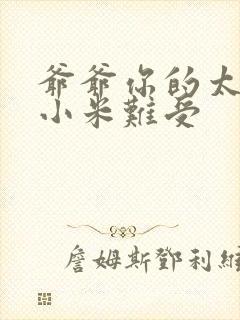 爺爺你的太
小米難受
詹姆斯鄧利維